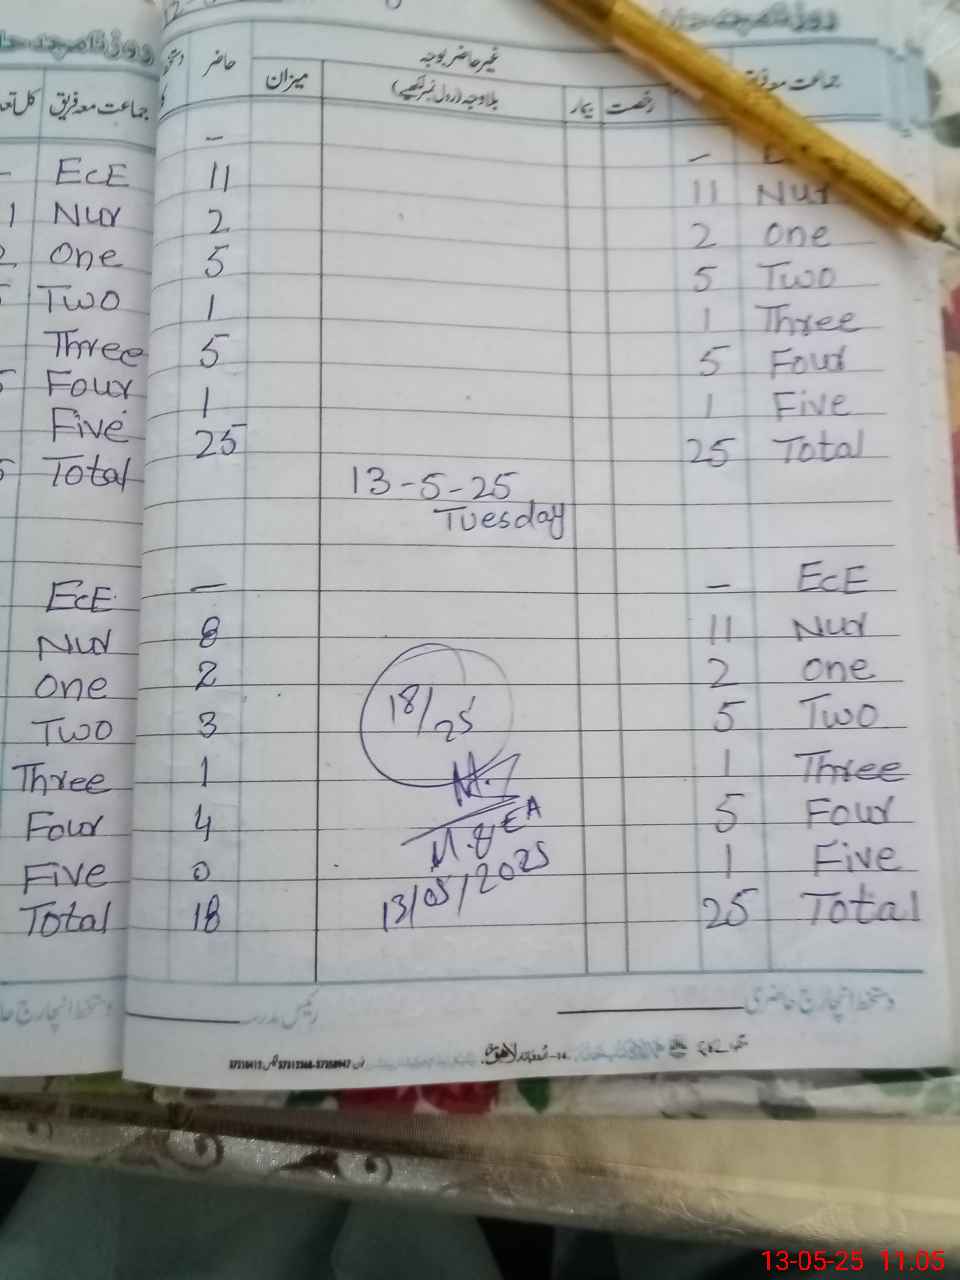 غیر حاضر بوجہ
جماعت معہ فریق
رخصت بیمار بلاوجہ (رول نمبر لکھیے) میزان حاضر
جماعت معہ فریق کل
EcE - -
Nur 11 11 Nur
one 2 2 One
Two 5 5 Two
Three 1 1 Three
Four 5 5 Four
Five 1 1 Five
Total 25 25 Total
13-5-25
Tuesday
EcE - - EcE
Nur 11 8 Nur
one 2 2 One
Two 5 3 Two
Three 1 1 Three
Four 5 4 Four
Five 1 0 Five
Total 25 18 Total
18/25
M.&EA
13/05/2025
دستخط انچارج حاضری رئیس مدرسہ
دستخط انچارج
لاہور
13-05-25 11.05